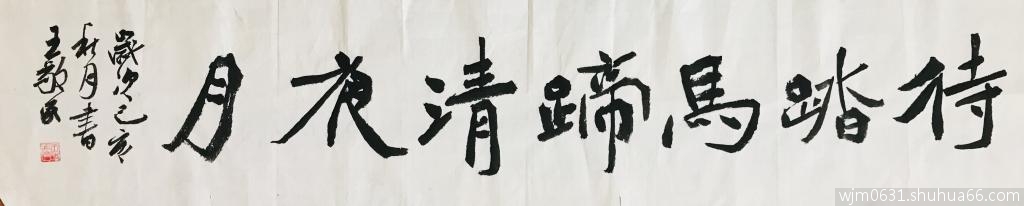 待踏馬蹄清夜月
歲次己亥
秋月書
王敬民
wjm0631.shuhua66.com